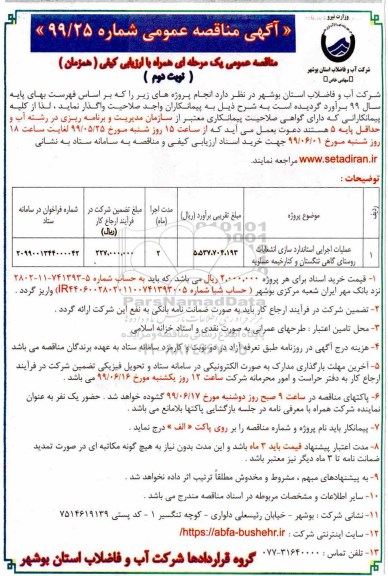 وزارت نیرو
شرکت آب و فاضلاب استان بوشهر
(سهامی خاص)
« آگهی مناقصه عمومی شماره ۹۹/۲۵ »
مناقصه عمومی یک مرحله ای همراه با ارزیابی کیفی ( همزمان )
( نوبت دوم )
شرکت آب و فاضلاب استان بوشهر در نظر دارد انجام پروژه های زیر را که بر اساس فهرست بهای پایه
سال ۹۹ برآورد گردیده است به شرح ذیل به پیمانکاران واجد صلاحیت واگذار نماید . لذا از کلیه
پیمانکارانی که دارای گواهی صلاحیت پیمانکاری معتبر از سازمان مدیریت و برنامه ریزی در رشته آب و
حداقل پایه ۵ هستند دعوت بعمل می آید که از ساعت ۱۵ روز شنبه مورخ ۹۹/۰۵/۲۵ لغایت ساعت ۱۸
روز شنبه مورخ ۹۹/۰۶/۰۱ جهت خرید اسناد ارزیابی کیفی و مناقصه به سامانه ستاد به نشانی
www.setadiran.ir مراجعه نمایند.
توضیحات :
ردیف موضوع پروژه مبلغ تقریبی برآورد (ریال) مدت اجرا (ماه) مبلغ تضمین شرکت در فرآیند ارجاع کار (ریال) شماره فراخوان در سامانه ستاد
۱ عملیات اجرایی استاندارد سازی انشعابات روستای گاهی تنگستان و کنارخیمه عسلویه ۲ ۲۰۹۹۰۰۱۳۴۴۰۰۰۰۴۲
۱- قیمت خرید اسناد برای هر پروژه ۲,۰۰۰,۰۰۰ ریال می باشد که باید به حساب شماره
نزد بانک مهر ایران شعبه مرکزی بوشهر واریز گردد .
۲- تضمین شرکت در فرآیند ارجاع کار باید به صورت ضمانت نامه بانکی به نفع این شرکت ارائه گردد .
۳- محل تامین اعتبار : طرحهای عمرانی به صورت نقدی و اسناد خزانه اسلامی.
۴- هزینه درج آگهی در روزنامه طبق تعرفه آزاد در دو نوبت و کارمزد سامانه ستاد به عهده برندگان مناقصه می باشد
۵- آخرین مهلت بارگذاری مدارک به صورت الکترونیکی در سامانه ستاد و تحویل فیزیکی تضمین شرکت در فرآیند
ارجاع کار به دفتر حراست و امور محرمانه شرکت ساعت ۱۲ روز یکشنبه مورخ ۹۹/۰۶/۱۶ می باشد .
۶- پاکتهای مناقصه در ساعت ۹ صبح روز دوشنبه مورخ ۹۹/۰۶/۱۷ گشوده خواهد شد . حضور یک نفر به عنوان
نماینده شرکت همراه با معرفی نامه در جلسه بازگشایی پاکتها بلامانع می باشد .
۷- پیمانکار باید نام پروژه و شماره مناقصه را بر روی پاکت « الف » درج نماید .
۸- مدت اعتبار پیشنهاد قیمت باید ۳ ماه باشد و این مدت بدون نیاز به هیچ گونه مکاتبه ای در صورت تمدید
ضمانت نامه تا ۳ ماه دیگر نیز معتبر باشد .
۹- به پیشنهادهای مبهم ، مشروط و مخدوش مطلقاً ترتیب اثر داده نخواهد شد .
۱۰- سایر اطلاعات و مشخصات مربوطه در اسناد مناقصه مندرج می باشد .
۱۱- نشانی شرکت : بوشهر - خیابان رئیسعلی دلواری - کوچه تنگسیر ۱ - کد پستی ۷۵۱۴۶۱۹۱۳۹
۱۲- سایت اینترنتی شرکت : https://abfa-bushehr.ir/
۱۳- تلفن تماس شرکت : ۳۱۶۴۰۰۰۰-۰۷۷
گروه قراردادها شرکت آب و فاضلاب استان بوشهر